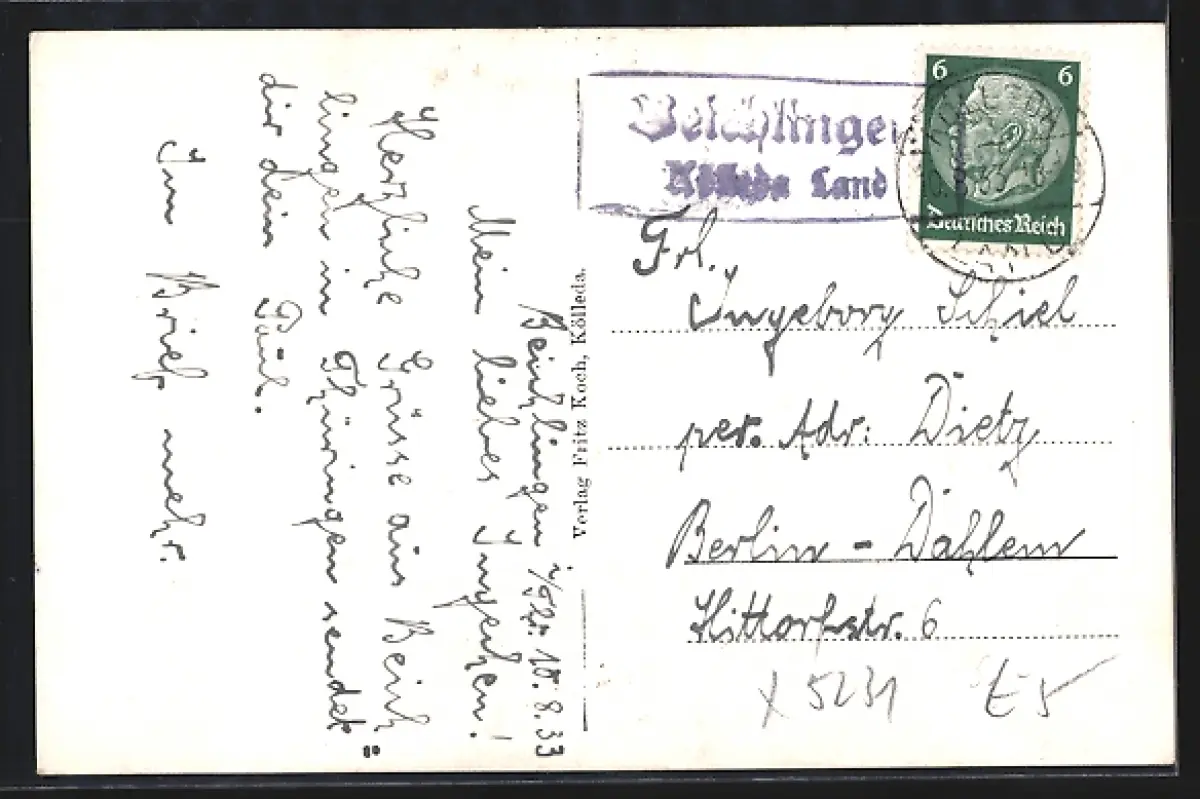 Beichlingen i/Thr. 10.8.33
Mein liebes Ingechen!
Herzliche Grüsse aus Beich=
lingen in Thüringen sendet
dir dein Paul.
Im Brief mehr.
Verlag Fritz Koch, Kölleda.
Beichlingen
Kölleda Land
6 6
Deutsches Reich
Frl.
Ingeborg Schiel
per. Adr: Dietz
Berlin - Dahlem
Hittorfstr. 6
x 5231 E5